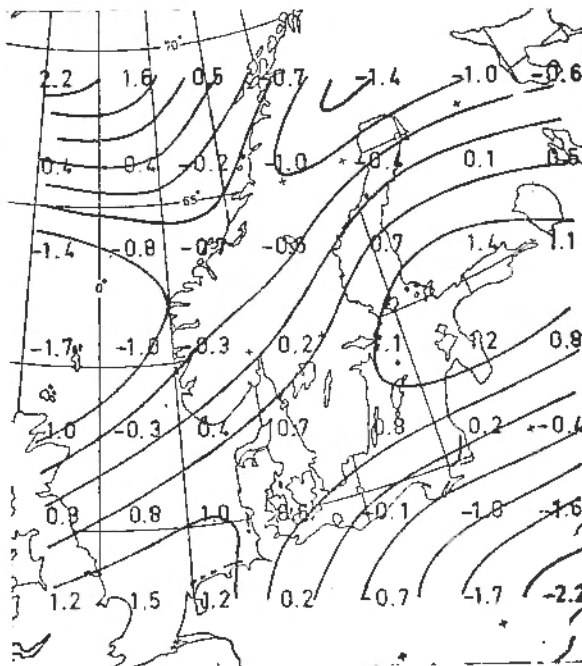 70°
2.2 1.6 -0.7 -1.4 -1.0 -0.6
0.4 0.4 -0.2 -1.0 -0.4 0.1
65°
-1.4 -0.8 0.7 1.4 1.1
0°
-1.7 -1.0 -0.3 0.2 1.1 1.2 0.8
1.0 -0.3 0.4 0.7 0.8 0.2 -0.4
0.8 1.0 -0.1 -1.6
1.2 1.5 1.2 0.2 -0.7 -1.7 -2.2